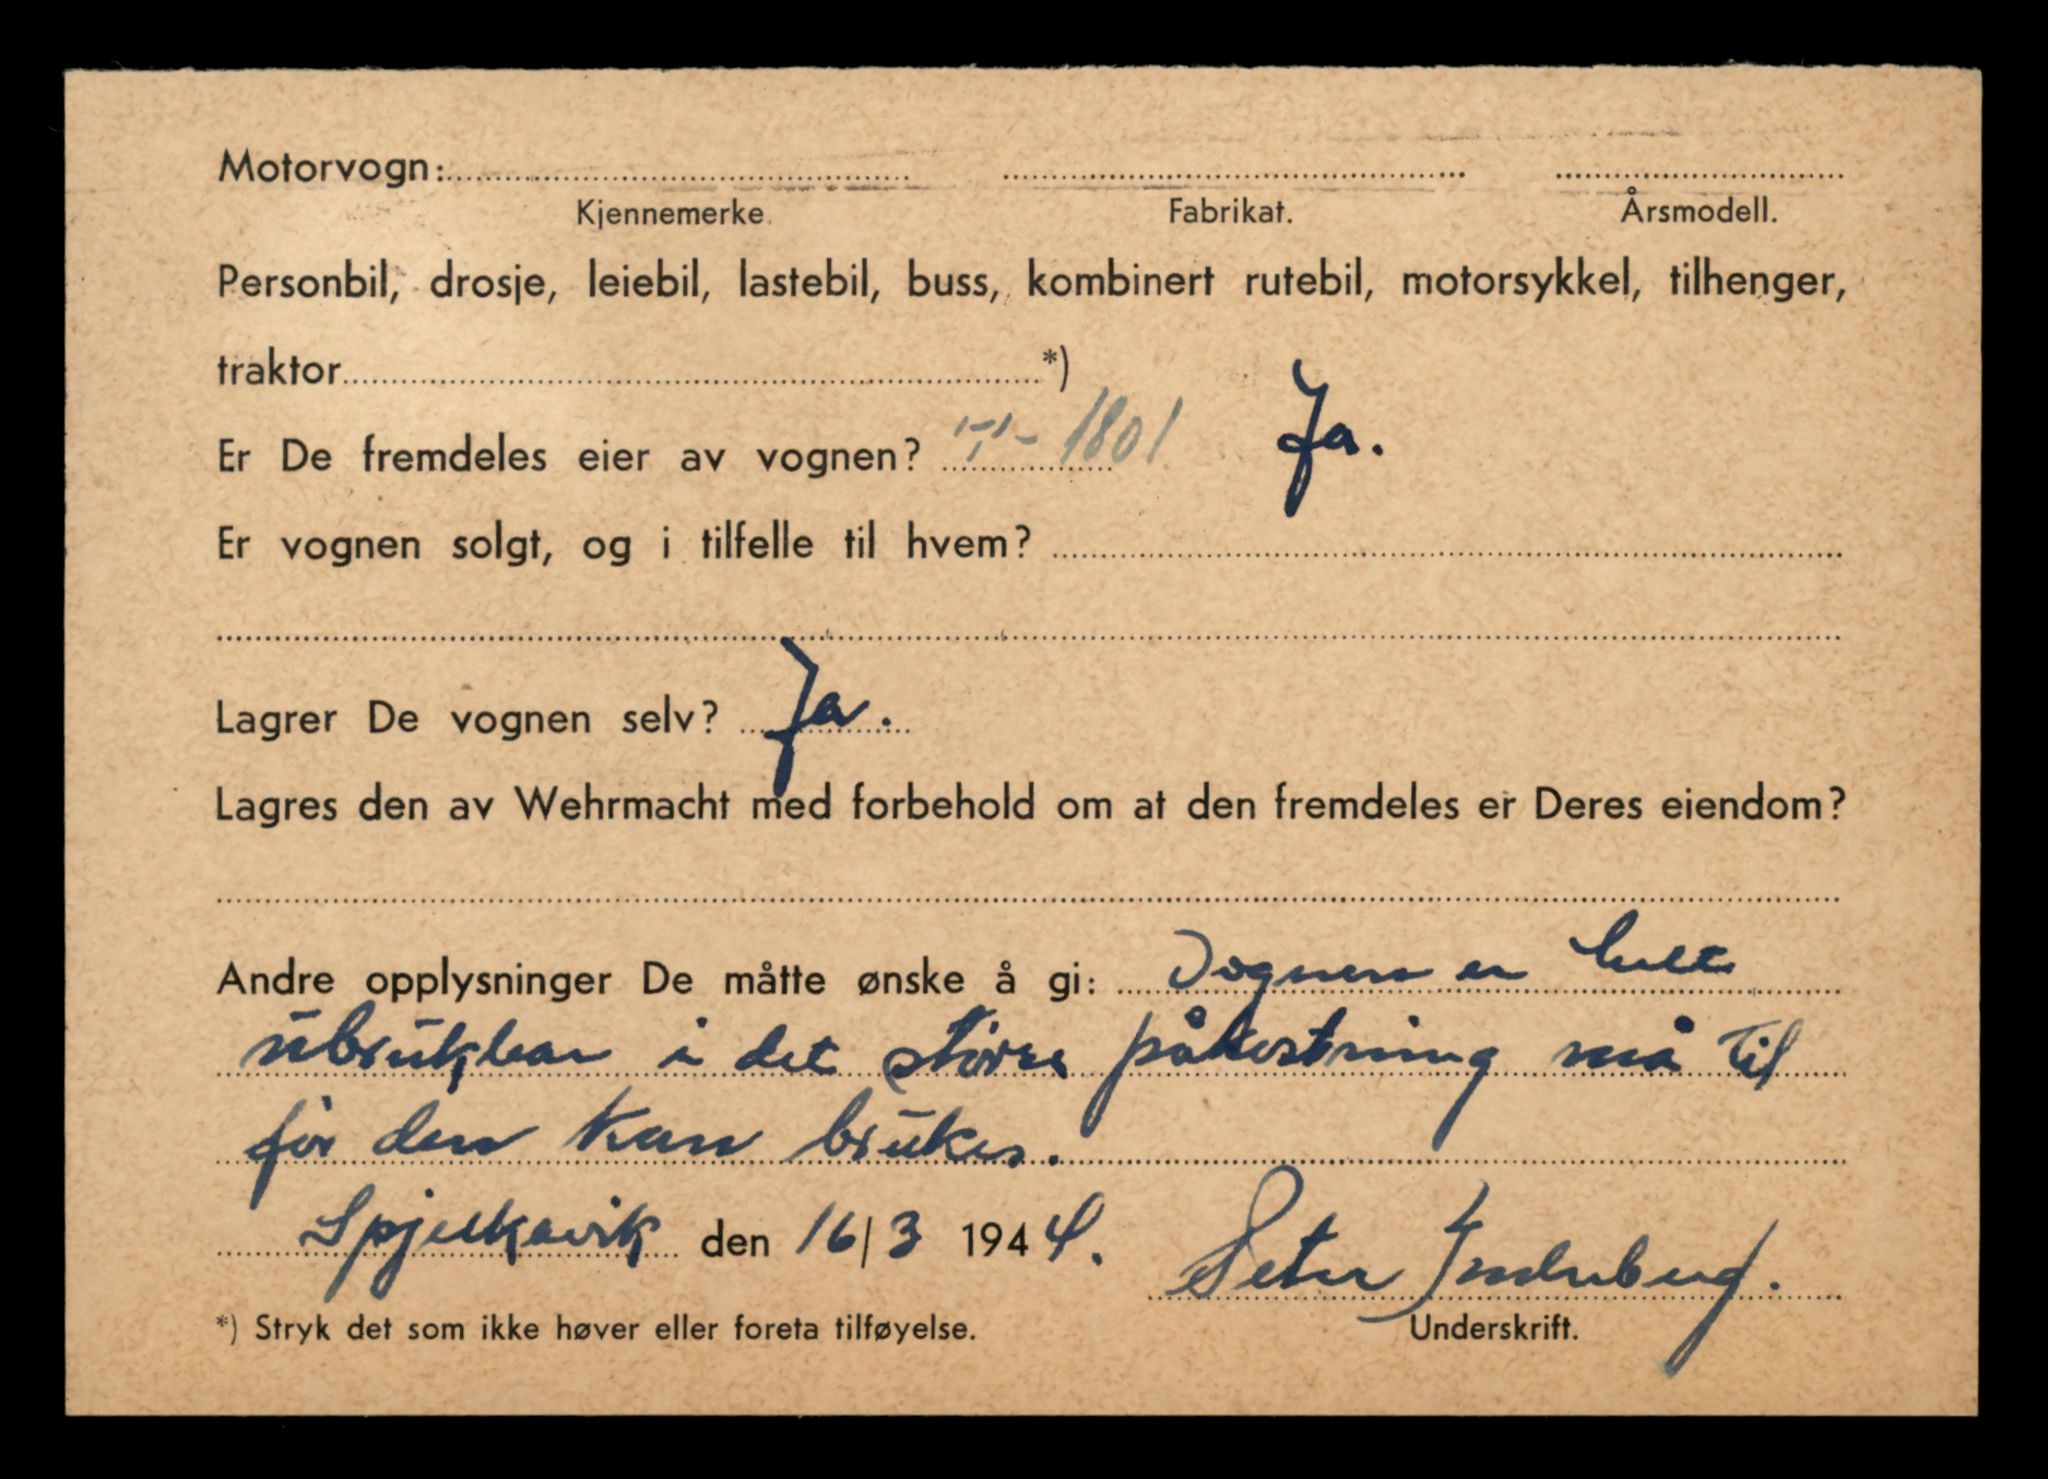 Motorvogn:
Kjennemerke. Fabrikat. Årsmodell.
Personbil, drosje, leiebil, lastebil, buss, kombinert rutebil, motorsykkel, tilhenger,
traktor *)
Er De fremdeles eier av vognen? 1801 Ja.
Er vognen solgt, og i tilfelle til hvem?
Lagrer De vognen selv? Ja.
Lagres den av Wehrmacht med forbehold om at den fremdeles er Deres eiendom?
Andre opplysninger De måtte ønske å gi: Vognen er helt
ubrukbar i det større påkostning må til
før den kan brukes.
Spjelkavik den 16/3 1944.
Peter Inderberg.
*) Stryk det som ikke høver eller foreta tilføyelse. Underskrift.